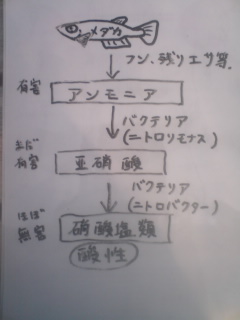 メダカ
フン、残りエサ等.
有害
アンモニア
バクテリア
(ニトロソモナス)
まだ
有害
亜硝酸
バクテリア
(ニトロバクター)
ほぼ
無害
硝酸塩類
酸性